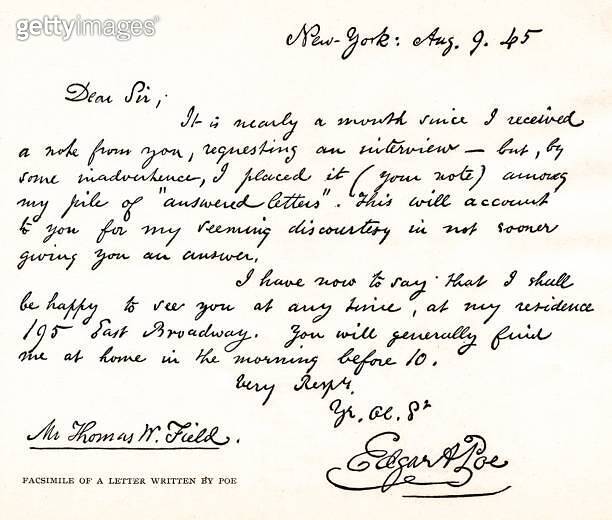 gettyimages®
New-York: Aug. 9. 45
Dear Sir,
It is nearly a month since I received
a note from you, requesting an interview — but, by
some inadvertence, I placed it (your note) among
my pile of "answered letters". This will account
to you for my seeming discourtesy in not sooner
giving you an answer.
I have now to say that I shall
be happy to see you at any time, at my residence
195 East Broadway. You will generally find
me at home in the morning before 10.
Very Respy.
Yr. Ob. St
Mr Thomas W. Field.
Edgar A Poe
FACSIMILE OF A LETTER WRITTEN BY POE